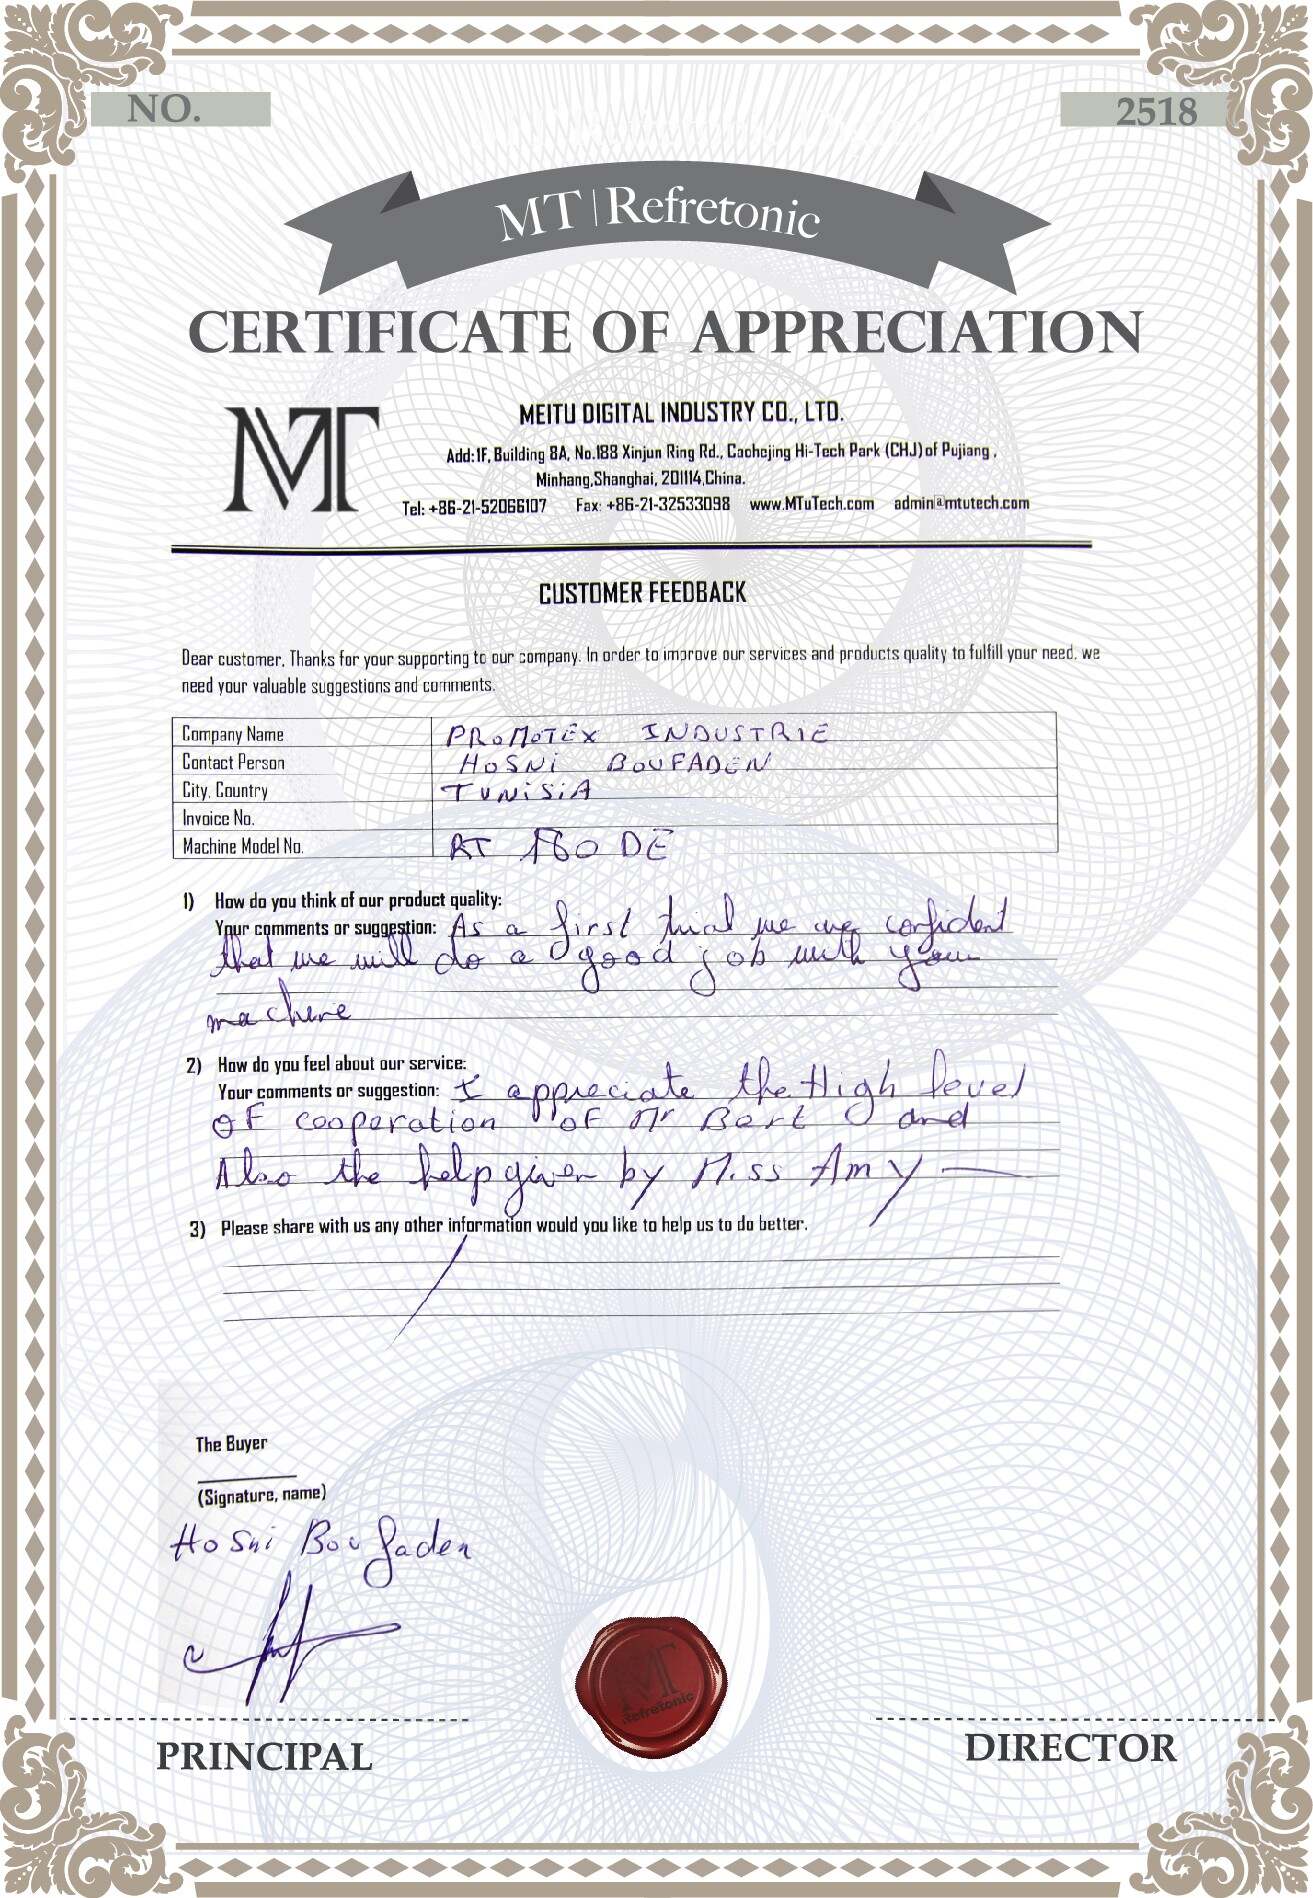 NO.
2518
MT | Refretonic
CERTIFICATE OF APPRECIATION
MT
MEITU DIGITAL INDUSTRY CO., LTD.
Add:1F, Building 8A, No.188 Xinjun Ring Rd., Caohejing Hi-Tech Park (CHJ) of Pujiang ,
Minhang,Shanghai, 201114,China.
Tel: +86-21-52066107 Fax: +86-21-32533098 www.MTuTech.com admin@mtutech.com
CUSTOMER FEEDBACK
Dear customer, Thanks for your supporting to our company. In order to improve our services and products quality to fulfill your need, we
need your valuable suggestions and comments.
Company Name PROMOTEX INDUSTRIE
Contact Person HOSNI BOUFADEN
City, Country TUNISIA
Invoice No.
Machine Model No. RT 180 DE
1) How do you think of our product quality:
Your comments or suggestion: As a first trial we are confident
that we will do a good job with your
machine
2) How do you feel about our service:
Your comments or suggestion: I appreciate the High level
OF cooperation OF Mr Bert and
Also the help given by Miss Amy
3) Please share with us any other information would you like to help us to do better.
The Buyer
(Signature, name)
Hosni Boufaden
MT
Refretonic
PRINCIPAL
DIRECTOR